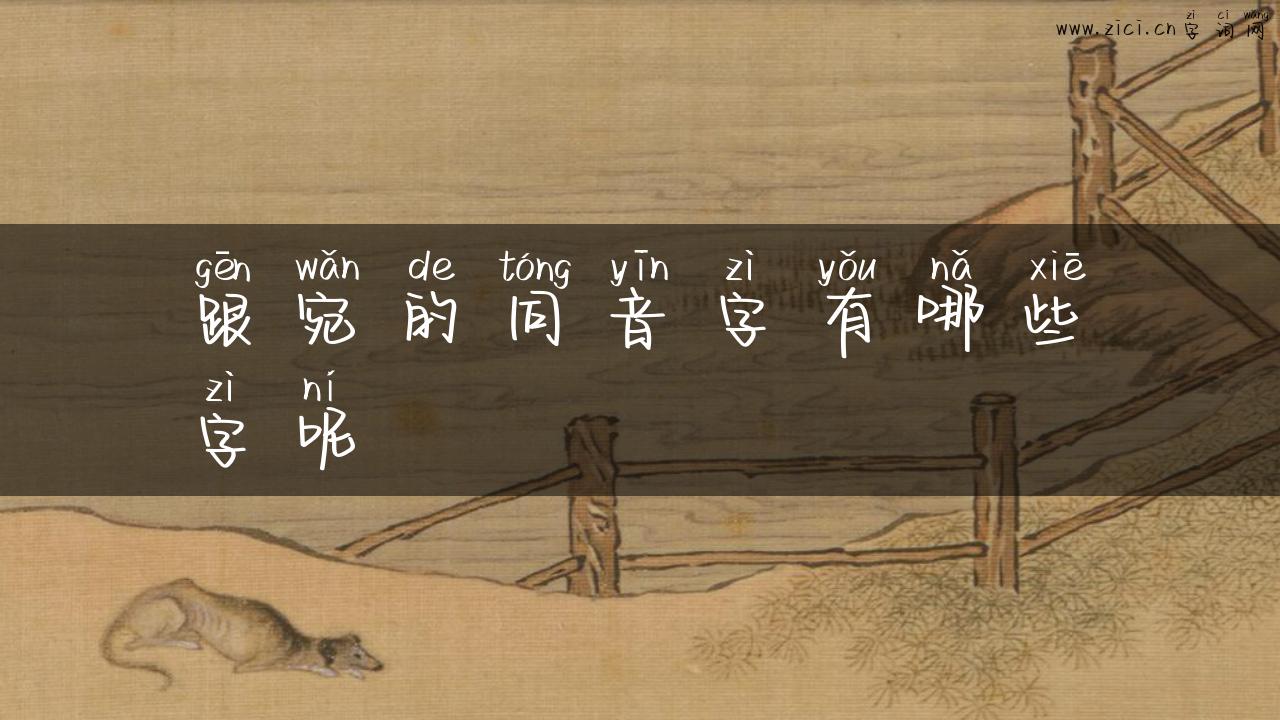 zì cí wǎng
www.zici.cn字词网
gēn wǎn de tóng yīn zì yǒu nǎ xiē
跟宛的同音字有哪些
zì ní
字呢